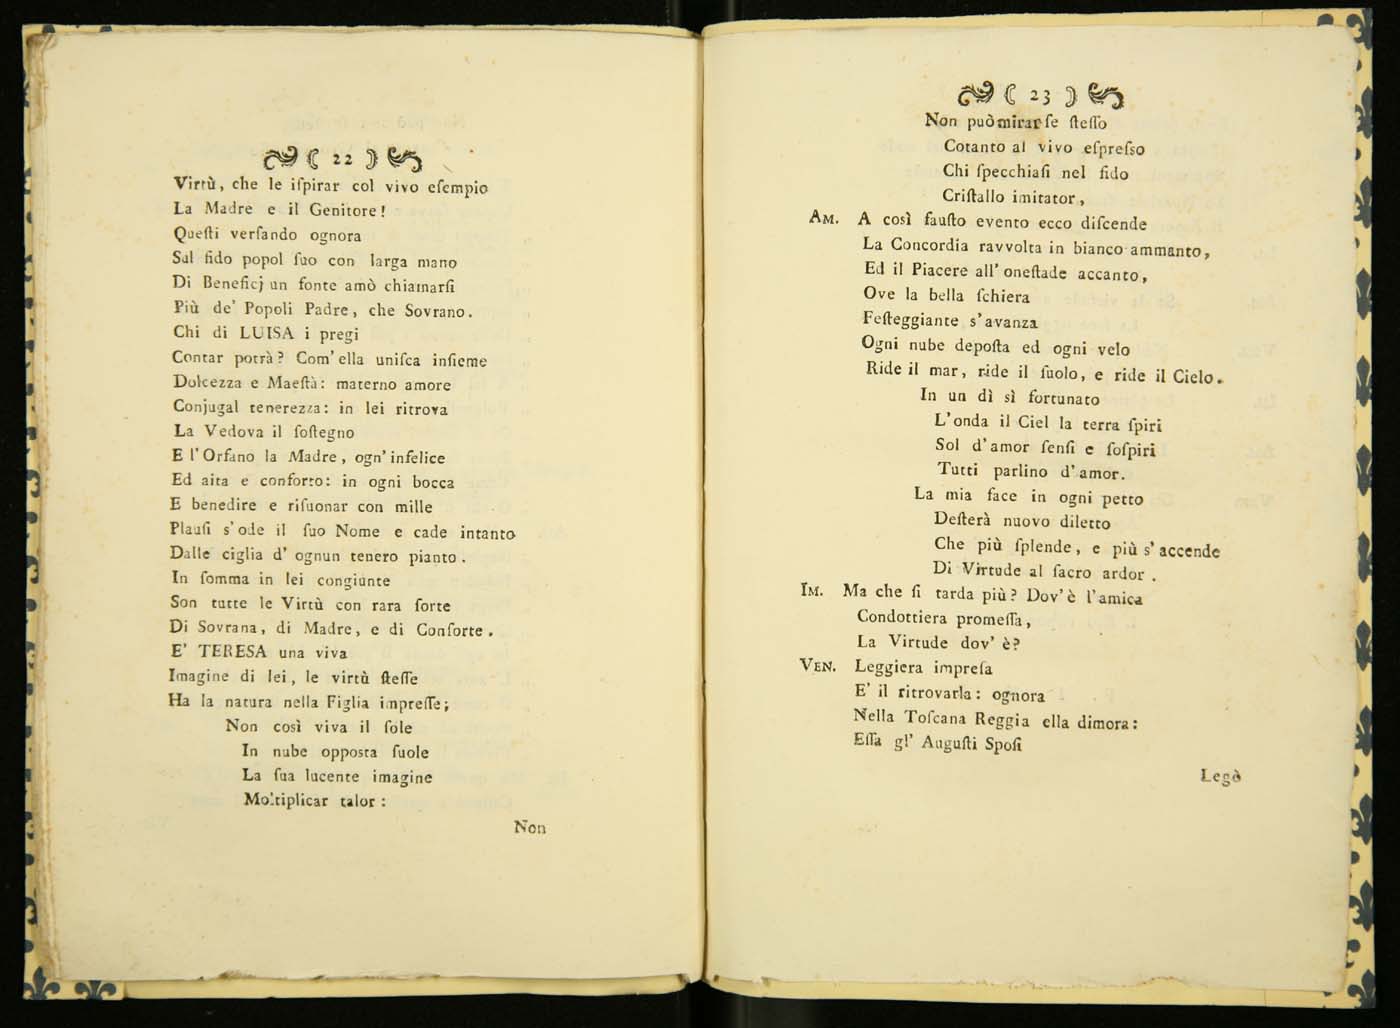 ( 22 )
Virtù, che le iſpirar col vivo eſempio
La Madre e il Genitore!
Queſti verſando ognora
Sul fido popol ſuo con larga mano
Di Beneficj un fonte amò chiamarſi
Più de' Popoli Padre, che Sovrano.
Chi di LUISA i pregi
Contar potrà? Com' ella uniſca inſieme
Dolcezza e Maeſtà: materno amore
Conjugal tenerezza: in lei ritrova
La Vedova il ſoſtegno
E l'Orfano la Madre, ogn' infelice
Ed aita e conforto: in ogni bocca
E benedire e riſuonar con mille
Plauſi s'ode il ſuo Nome e cade intanto
Dalle ciglia d' ognun tenero pianto.
In ſomma in lei congiunte
Son tutte le Virtù con rara ſorte
Di Sovrana, di Madre, e di Conſorte.
E' TERESA una viva
Imagine di lei, le virtù ſteſſe
Ha la natura nella Figlia impreſſe;
Non così viva il ſole
In nube oppoſta ſuole
La ſua lucente imagine
Moltiplicar talor:
Non
( 23 )
Non può mirar ſe ſteſſo
Cotanto al vivo eſpreſso
Chi ſpecchiaſi nel fido
Criſtallo imitator,
AM. A così fauſto evento ecco diſcende
La Concordia ravvolta in bianco ammanto,
Ed il Piacere all' oneſtade accanto,
Ove la bella ſchiera
Feſteggiante s'avanza
Ogni nube depoſta ed ogni velo
Ride il mar, ride il ſuolo, e ride il Cielo.
In un dì sì fortunato
L'onda il Ciel la terra ſpiri
Sol d'amor ſenſi e ſoſpiri
Tutti parlino d'amor.
La mia face in ogni petto
Deſterà nuovo diletto
Che più ſplende, e più s'accende
Di Virtude al ſacro ardor.
IM. Ma che ſi tarda più? Dov'è l'amica
Condottiera promeſſa,
La Virtude dov' è?
VEN. Leggiera impreſa
E' il ritrovarla: ognora
Nella Toſcana Reggia ella dimora:
Eſſa gl' Auguſti Spoſi
Legò